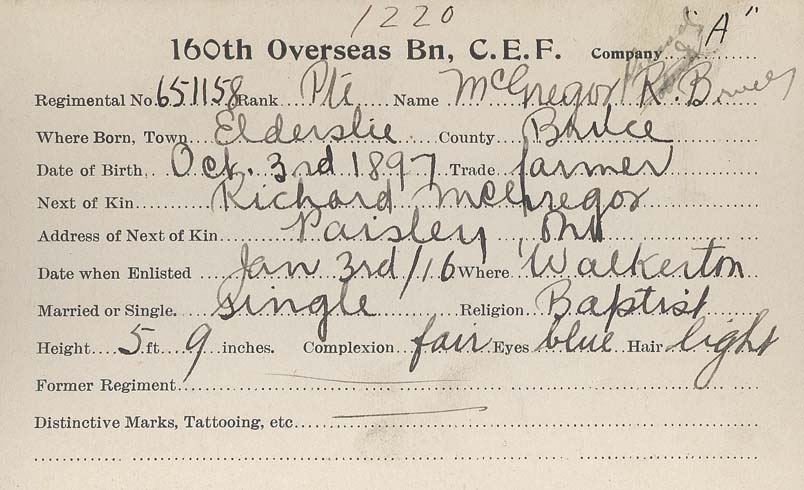 1220
160th Overseas Bn, C.E.F. Company "A"
Regimental No. 651158 Rank Pte Name McGregor R. Bruce
Where Born, Town Elderslie County Bruce
Date of Birth, Oct. 3rd 1897 Trade farmer
Next of Kin Richard McGregor
Address of Next of Kin Paisley, Ont
Date when Enlisted Jan 3rd/16 Where Walkerton
Married or Single. single Religion Baptist
Height 5 ft 9 inches. Complexion fair Eyes blue Hair light
Former Regiment
Distinctive Marks, Tattooing, etc